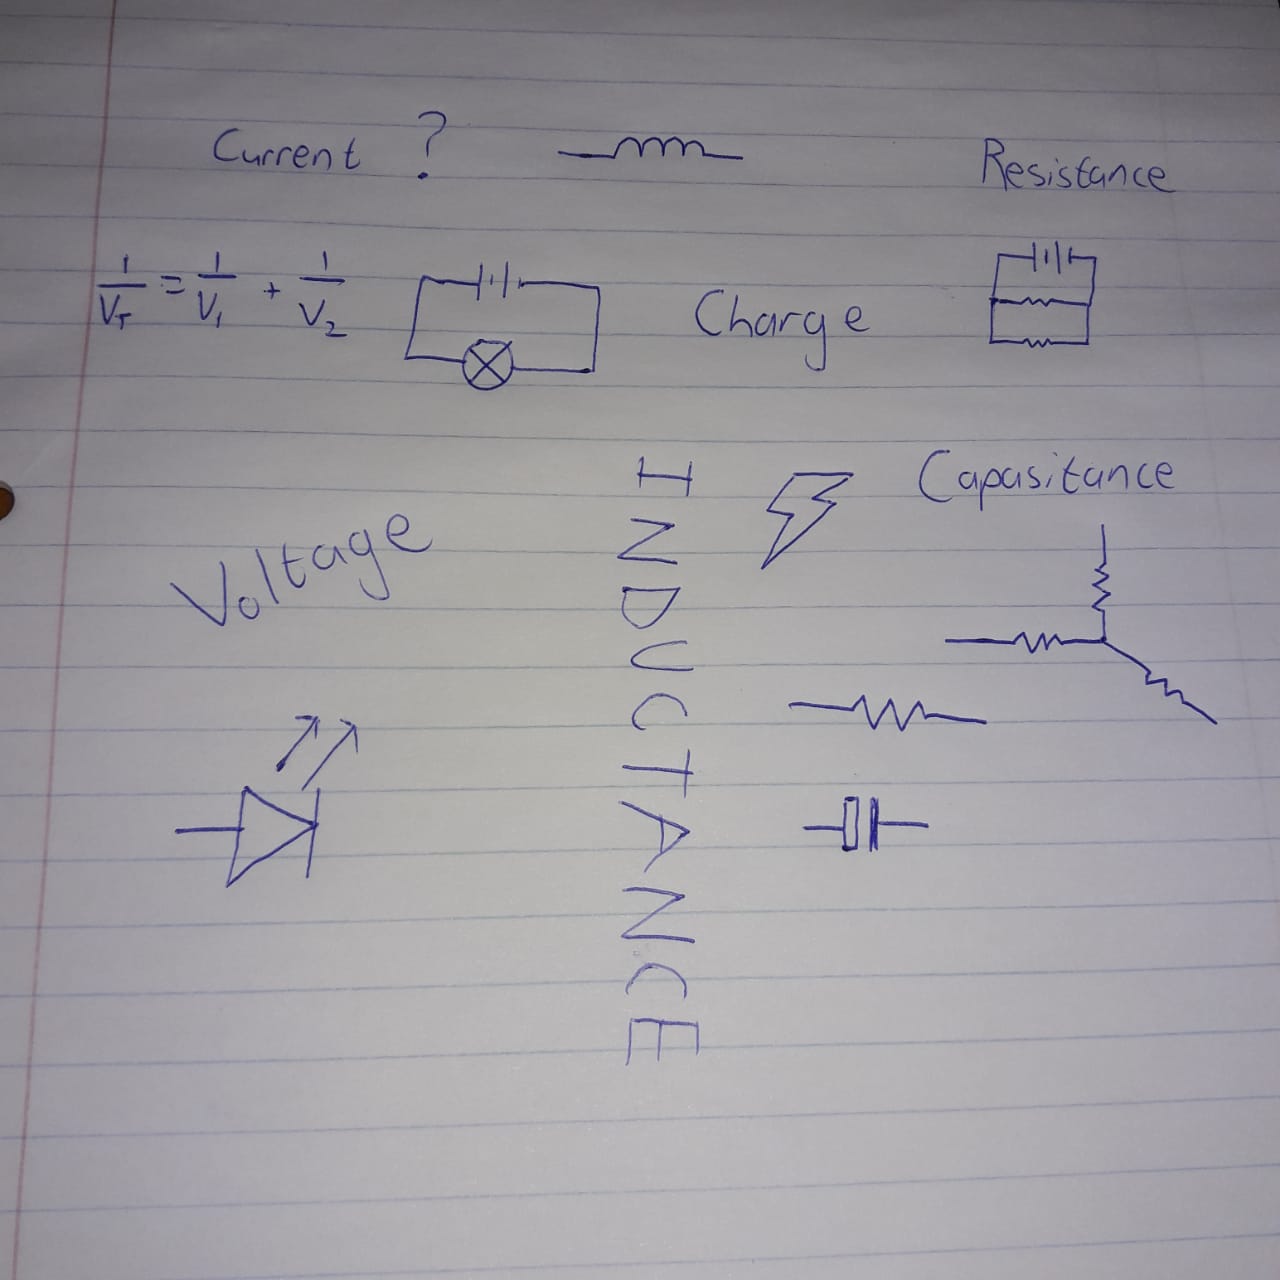 Current ?
Resistance
1/V_T = 1/V_1 + 1/V_2
Charge
Capasitance
Voltage
INDUCTANCE